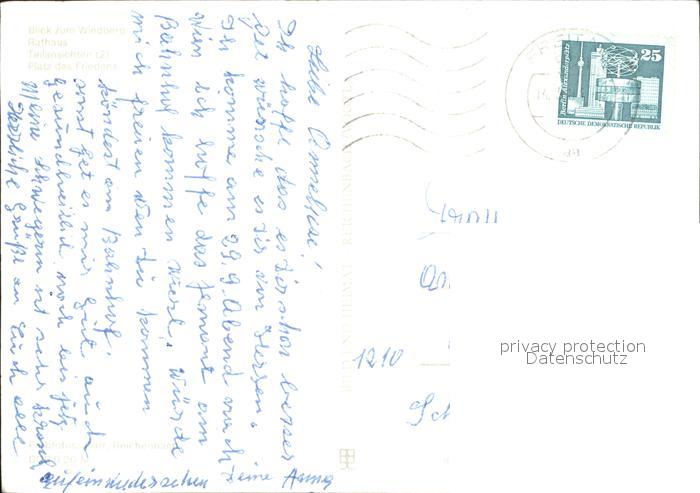 Blick zum Windberg
Rathaus
Teilansichten (2)
Platz des Friedens
Liebe Annelise!
Ich hoffe das es dir schon besser
get wünsche es dir von Herzen.
Ich komme am 29.9. Abend nach
Wien ich hoffe das jemant am
Bahnhof kommen wird, würde
mich freuen wen du kommen
köndest am Bahnhof.
sonst get es mir gut auch
gesundheitlich noch bis jetz.
Meine Schwegerin ist sehr krank
Herzliche Grüße an Euch alle
aufeinwiedersehen deine
BILD UND HEIMAT REICHENBACH
25
Berlin, Alexanderplatz
DEUTSCHE DEMOKRATISCHE REPUBLIK
1210
privacy protection
Datenschutz